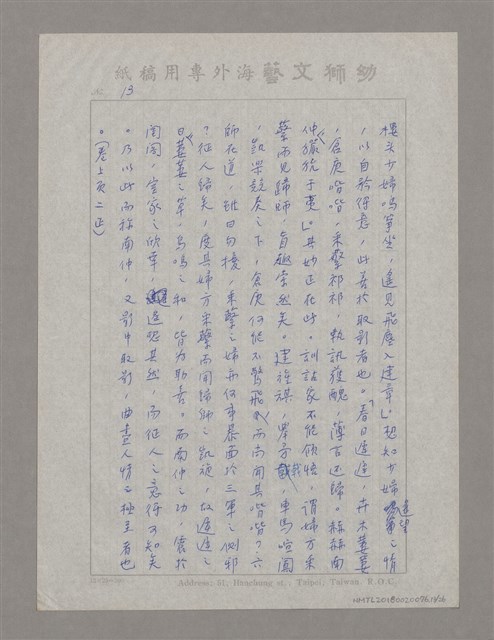 幼獅文藝海外專用稿紙
No. 13
樓頭少婦鳴箏坐，遙見飛塵入建章」想知少婦遙望之情
，以自矜得意，此善於取影者也。「春日遲遲，卉木萋萋
，倉庚喈喈，采蘩祁祁，執訊獲醜，薄言還歸。赫赫南
仲，玁狁于夷」。其妙正在此。訓詁家不能領悟，謂婦方采
蘩而見歸師，旨趣索然矣。建旌旗，舉矛戟，車馬喧闐
，凱樂競奏之下，倉庚何能不驚飛，而尚聞其喈喈？六
師在道，雖曰勿擾，采蘩之婦亦何事暴面於三軍之側邪
？征人歸矣，度其婦方采蘩而聞歸師之凱旋，故遲遲之
日，萋萋之草，鳥鳴之和，皆為助喜。而南仲之功，震於
閨閣，室家之欣幸，遙想其然，而征人之意得可知矣
。乃以此而稱南仲，又影中取影，曲盡人情之極至者也
。（卷上頁二正）
Address: 51, Hanchung st., Taipei, Taiwan, R.O.C.